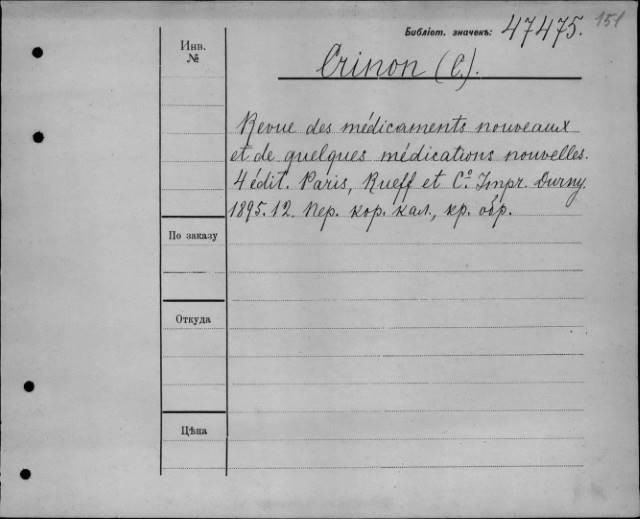 Библіот. значекъ: 47475. 151
Инв. №
Crinon (C.).
Revue des médicaments nouveaux
et de quelques médications nouvelles.
4 édit. Paris, Rueff et Cº. Impr. Durny.
1895. 12. Пер. кор. кал., кр. обр.
По заказу
Откуда
Цѣна